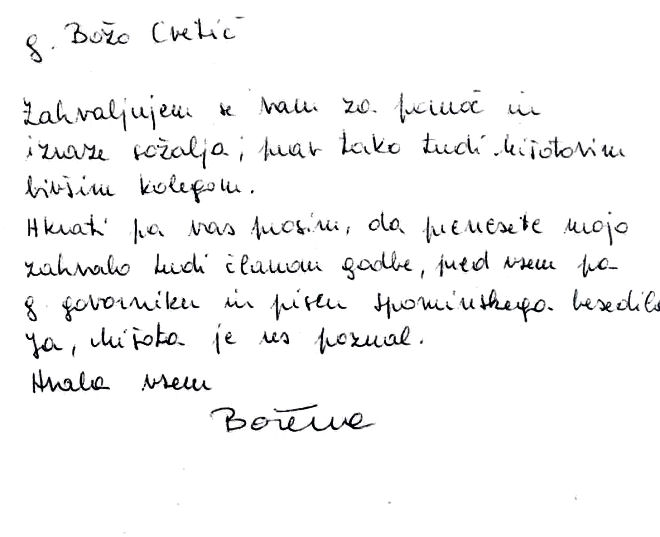 g. Božo Cvetič
Zahvaljujem se vam za pomoč in
izraze sožalja, prav tako tudi Mišotovim
bivšim kolegom.
Hkrati pa vas prosim, da prenesete mojo
zahvalo tudi članom godbe, pred vsem pa
g govorniku in piscu spominskega besedila
Ja, Mišota je res poznal.
Hvala vsem